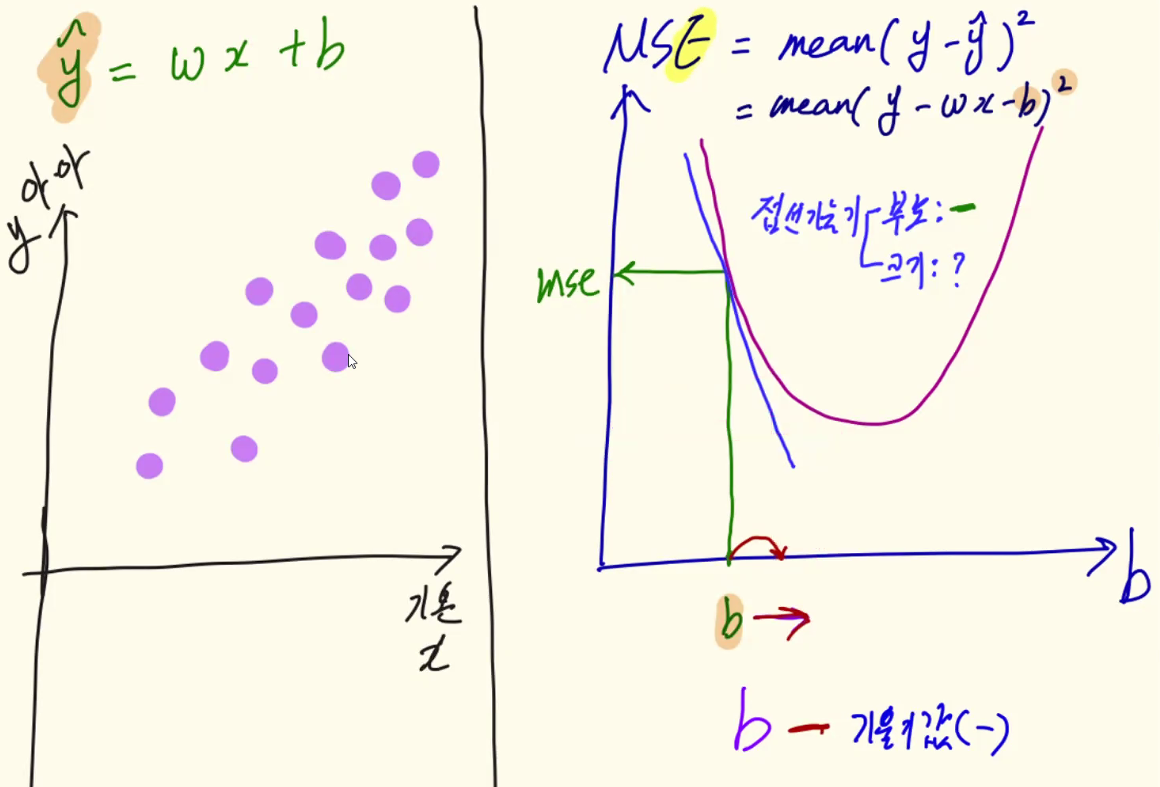 ŷ = wx + b
아아
y
기온
x
MSE = mean(y - ŷ)²
= mean(y - wx - b)²
접선기울기 부호: -
크기: ?
mse
b
b →
b - 기울기값(-)